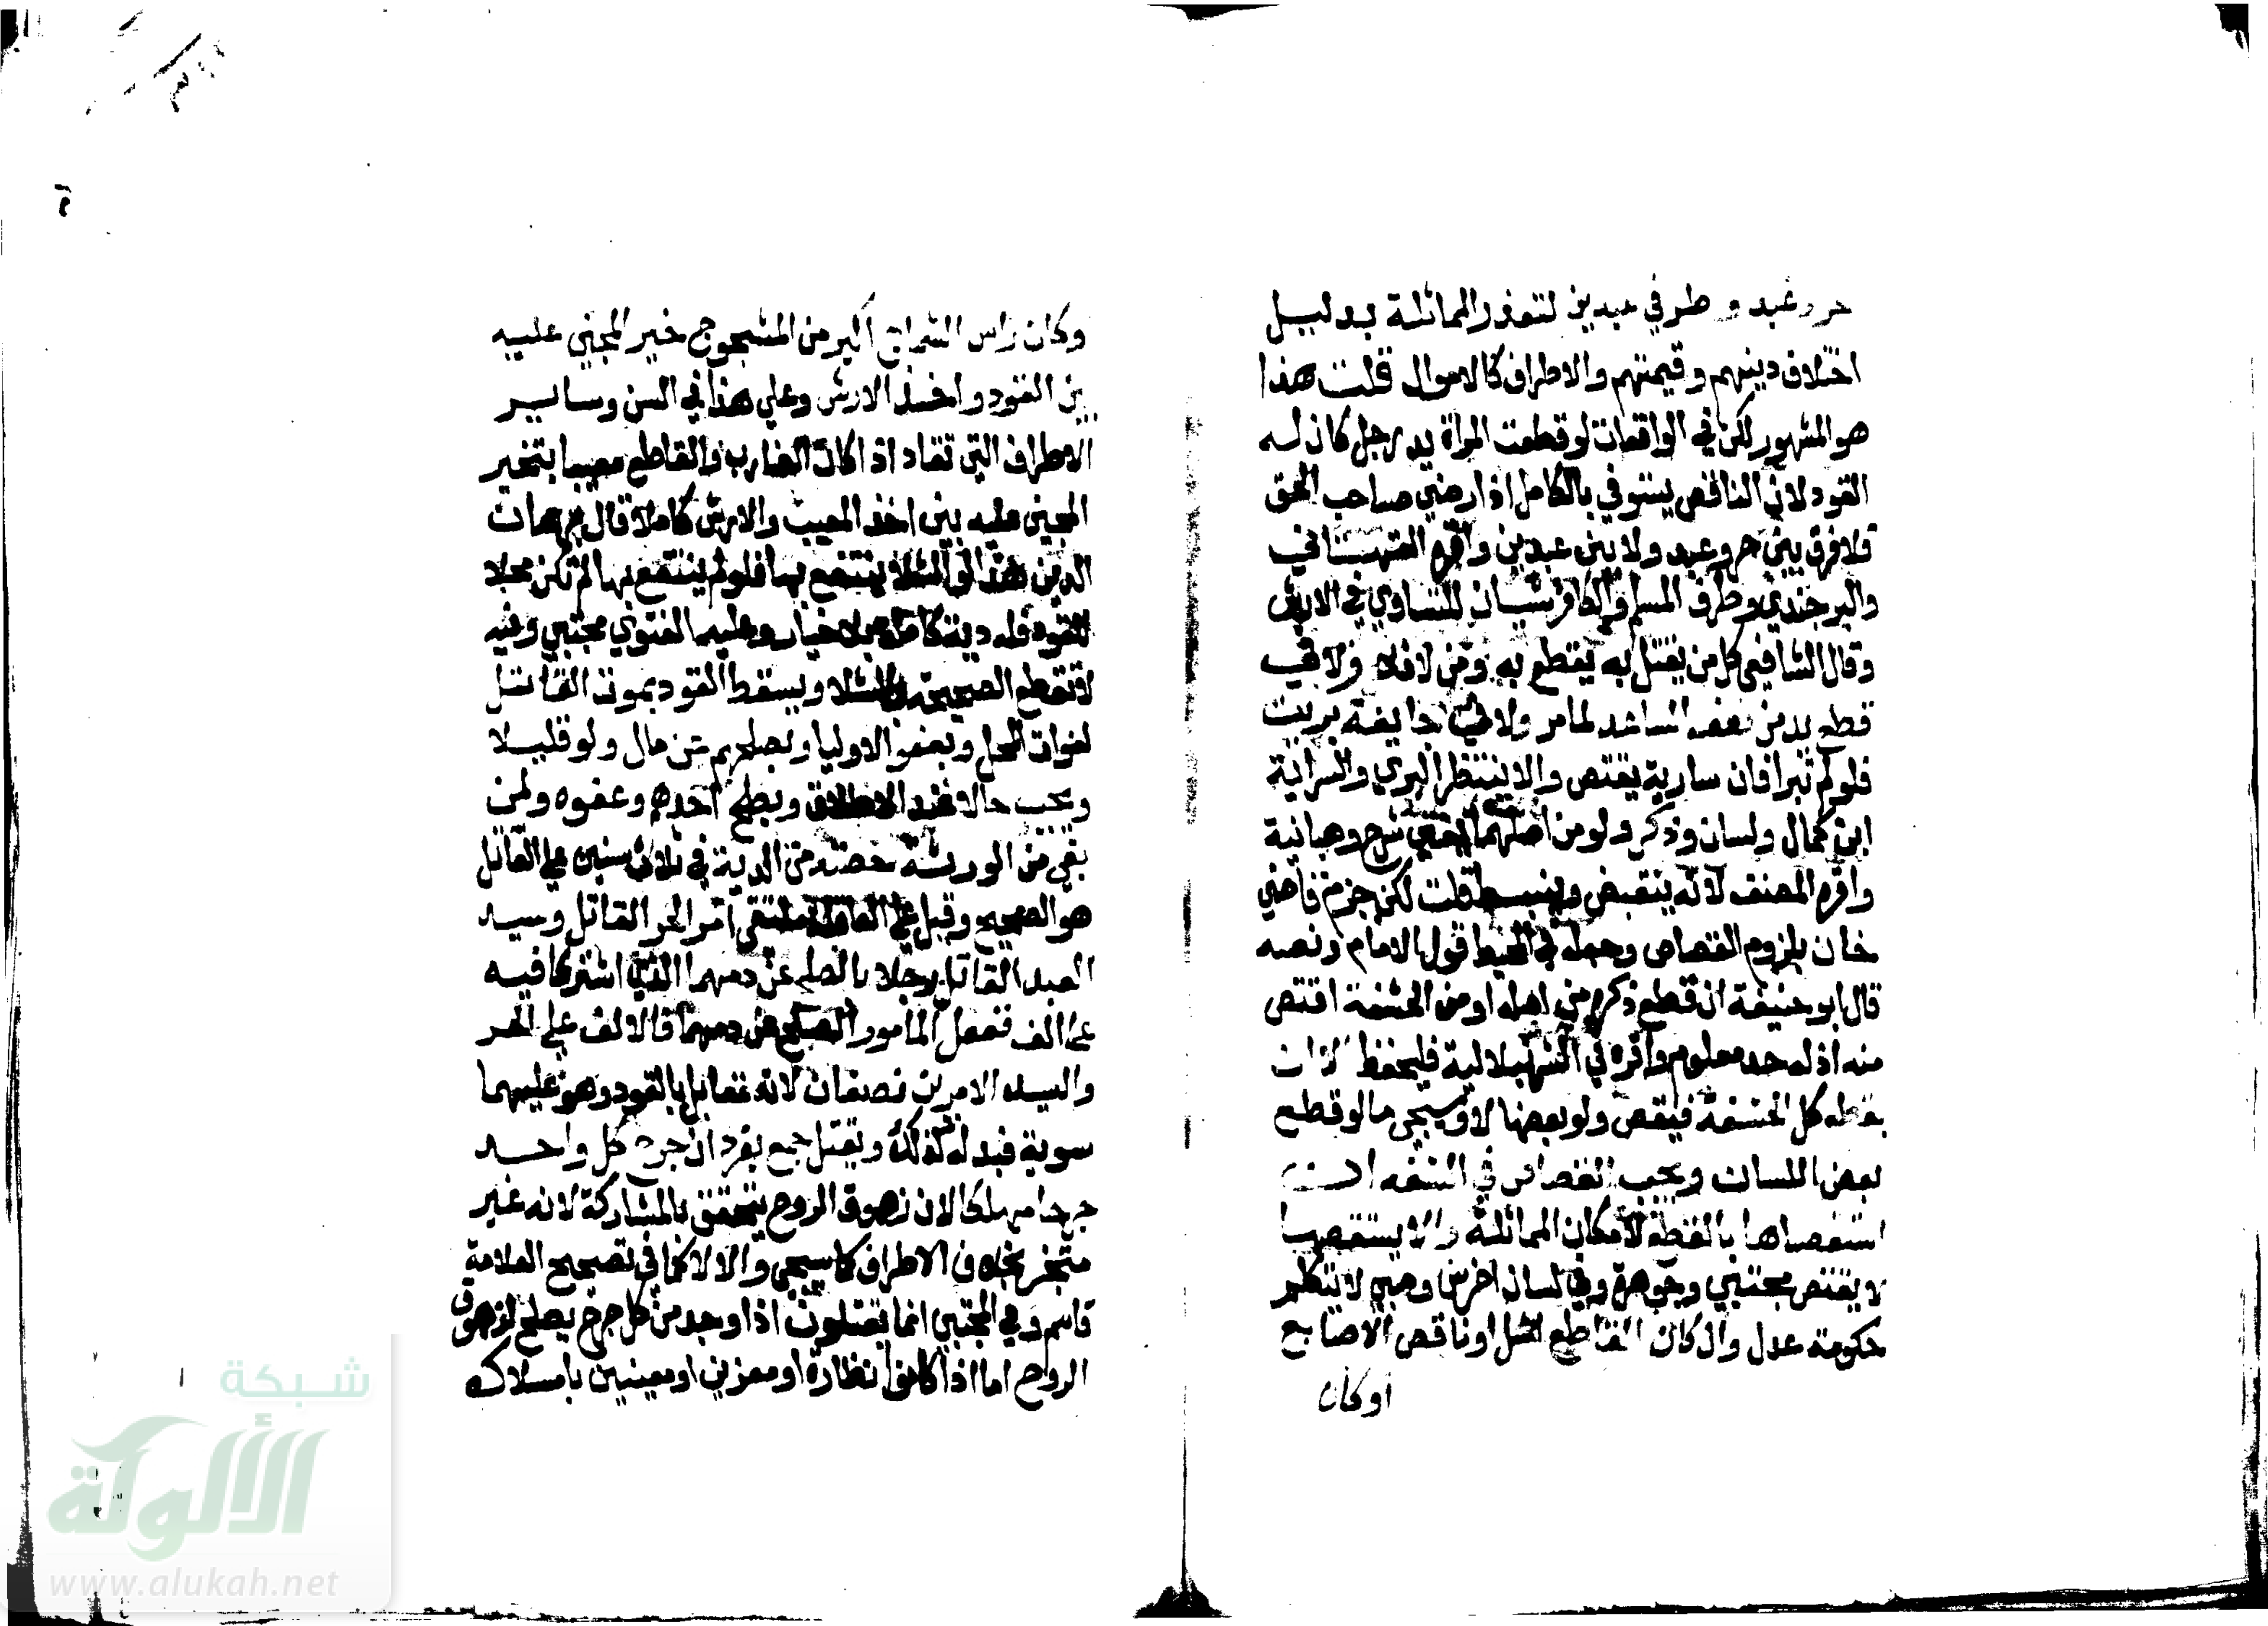 حر وعبد وطرفي عبدين لتعذر المماثلة بدليل
اختلاف ديتهم وقيمتهم والاطراف كالاموال قلت هذا
هو المشهور لكن في الواقعات لو قطعت المراة يد رجل كان له
القود لان الناقص يستوفي بالكامل اذا رضي صاحب الحق
فلا فرق بين حر وعبد ولا بين عبدين واقره القهستاني
والبرجندي وطرف المسلم والكافر سيان للتساوي في الارش
وقال الشافعي كل من يقتل به يقطع به ومن لا فلا ولا في
قطع يد من نصف الساعد لما مر ولا في جايفة بريت
فلو لم تبرا فان سارية يقتص والا ينتظر البري والسراية
ابن كمال ولسان وذكر ولو من اصلهما به يفتي شرح وهبانية
واقره المصنف لانه ينقبض وينبسط قلت لكن جزم قاضي
خان بلزوم القصاص وجعله في المحيط قول الامام ونصه
قال ابو حنيفة ان قطع ذكره من اصله او من الحشفة اقتص
منه اذ له حد معلوم واقره في الشرنبلالية فليحفظ
بقطع كل الحشفة فيقص ولو بعضها لا وسيجي ما لو قطع
بعض اللسان ويجب القصاص في الشفة ان
استقصاها بالقطع لامكان المماثلة والا يستقصها
لا يقتص مجتبي وجوهرة وفي لسان اخرس وصبي لا يتكلم
حكومة عدل وان كان القاطع اشل او ناقص الاصابع
او كان
وكان راس الشاج اكبر من المشجوج خير المجني عليه
بين القود واخذ الارش وعلي هذا في السن وساير
الاطراف التي تقاد اذا كان الضارب والقاطع معيبا يتخير
المجني عليه بين اخذ المعيب والارش كاملا قال برهان
الدين هذا لو الشلا ينتفع بها فلو لم ينتفع بها لم تكن محلا
للقود فله دية كاملة بلا خيار وعليه الفتوي مجتبي وفيه
لا تقطع الصحيحة بالشلا ويسقط القود بموت القاتل
لفوات المحل وبعفو الاوليا وبصلحهم علي مال ولو قليلا
ويجب حالا عند الاطلاق وبصلح احدهم وعفوه ولمن
بقي من الورثة حصته من الدية في ثلاث سنين علي القاتل
هو الصحيح وقيل علي العاقلة ملتقي امر الحر القاتل وسيد
العبد القاتل رجلا بالصلح عن دمهما الذي اشتركا فيه
علي الف ففعل المامور الصلح عن دمهما فالالف علي الحر
والسيد الامرين نصفان لانه مقابل بالقود وهو عليهما
سوية فبدله كذلك ويقتل جمع بفرد ان جرح كل واحد
جرحا مهلكا لان زهوق الروح يتحقق بالمشاركة لانه غير
متجز بخلاف الاطراف كما سيجي والا لا كما في تصحيح العلامة
قاسم وفي المجتبي انما يقتلون اذا وجد من كل جرح يصلح لزهوق
الروح اما اذا كانوا نظارة او مغرين او معينين بامساك
شبكة
الألوكة
www.alukah.net